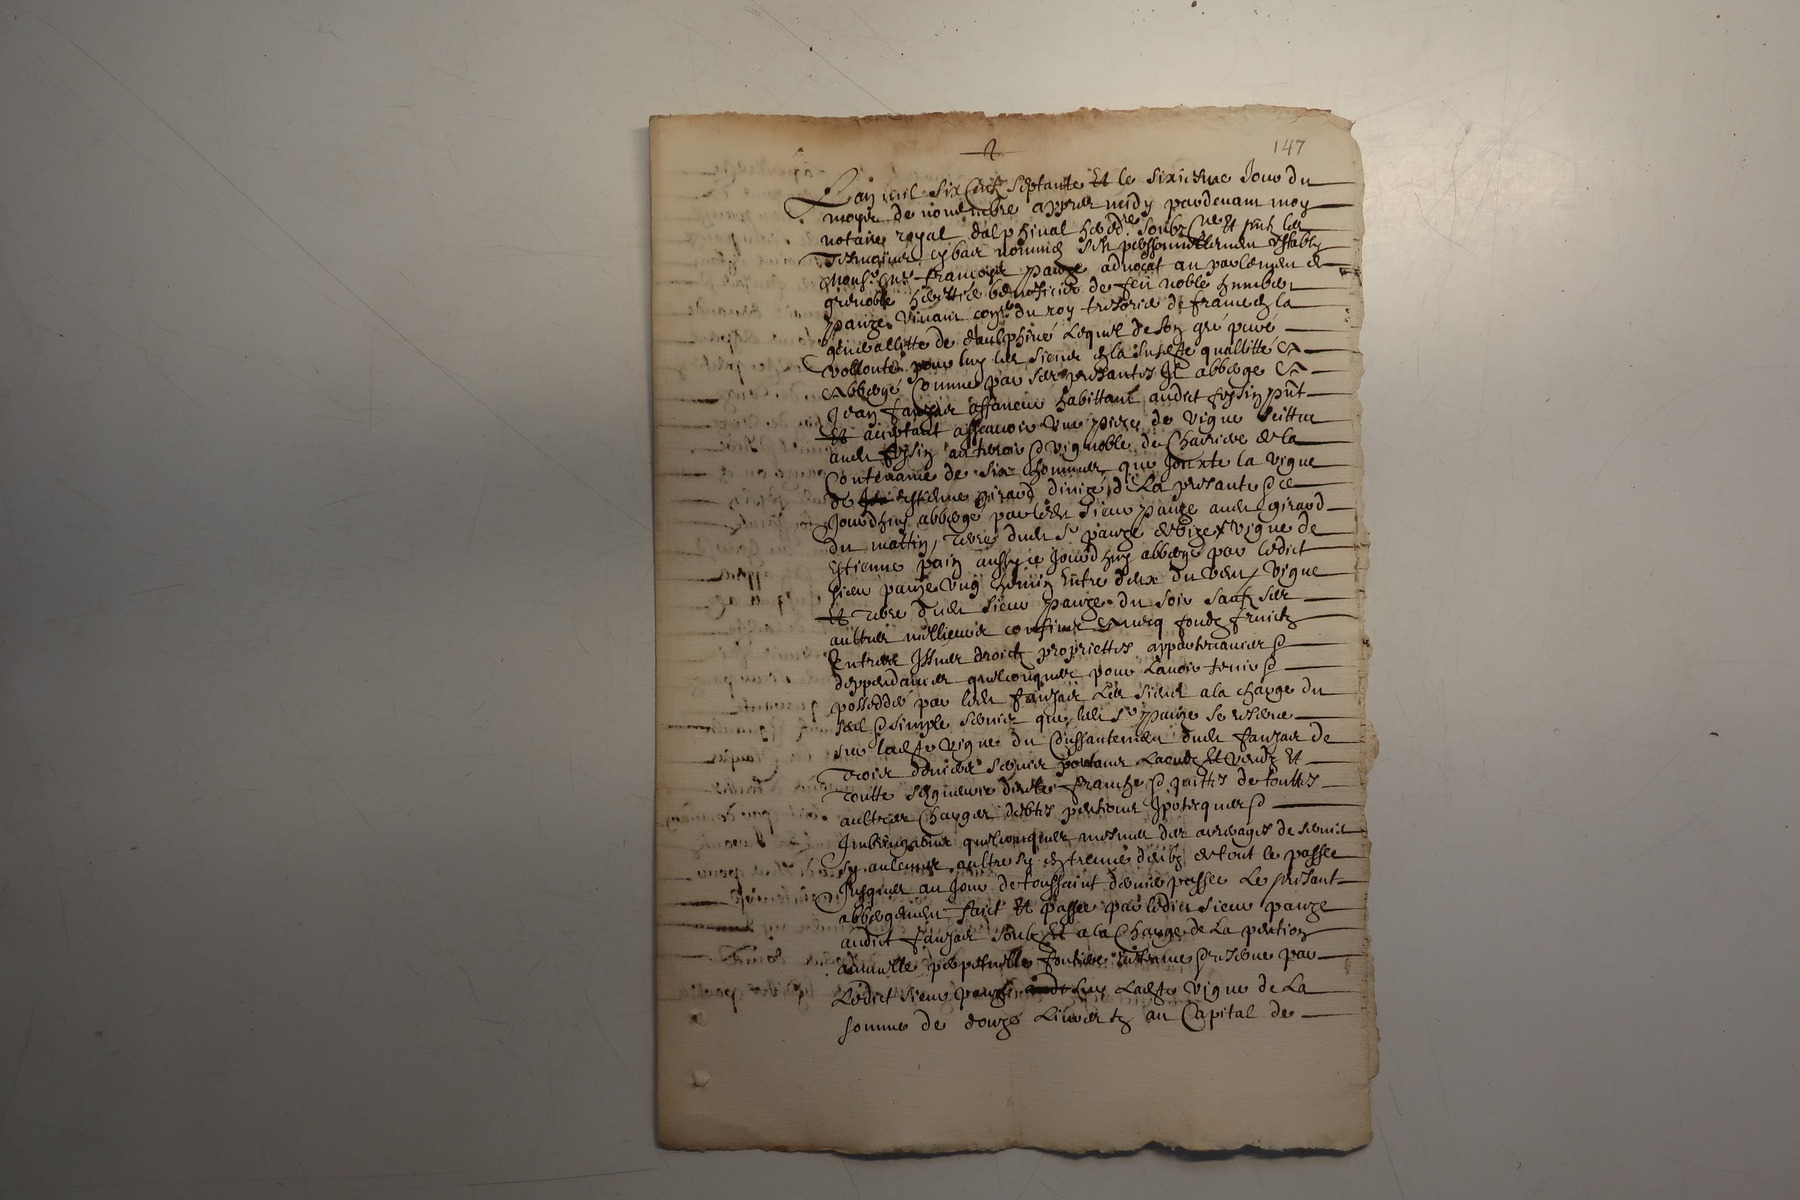 147
L'an mil six centz septante Et le sixiesme Jour du
moys de novembre appres midy pardevant moy
notaire royal dalphinal hered.re soubz.ne Et pntz les
Tesmoings cybas nommes s'est personnellement establis
Mons.r Me francoys pauze advocat au parlement de
grenoble heritier beneficiere de feu noble humber
pauze vivant con.er du roy tresorier de france en la
generallitte de daulphiné Lequel de son gré puré
vollonté pour luy les siens en la susd.te quallitté a
Abbergé Comme par ses presantes Il abberge a
Jean fanjas affaneur habittant audict fysin pnt
Et aceptant assavoir Une piece de vigne scittué
aud. fysin au terroir & vignoble de Charriere de la
Contenance de six hommes que Jouxte la vigne
de estienne girard divise de La presante & ce
Jourdhuy abbergé par led. sieur pauze aud. girard
du mattin, terre dud. s.r pauze de bize, vigne de
Estienne pain aussy ce Jourdhuy abbergé par ledict
sieur pauze Ung chemin Entre deux du vent, vigne
Et terre dud. sieur pauze du soir sauf ses
aultres meillieurs confins Avecq fondz fruictz
Entrées Issues droictz propriettés appartenances &
deppendances quelconques pour L'avoir tenir &
posseddé par led. fanjas Les siens a la charge du
seul & simple servis que led. s.r pauze se reserve
sur lad.te vigne du Consantement dud. fanjas de
Trois deniers servis portant Laoudz Et vendz Et
Toutte seigneurie directe franche & quittes de touttes
aultres Charges debtes pentions Ipotecques &
quelconques mesmes des arreages de servis
sy aulcungs aultre sy en treuve deubz de tout le passée
Jusques au Jour de toussaint dernier passée Le presant
abbergement faict Et passée par ledict sieur pauze
audict fanjas soubz Et a la Charge de La pention
annuelle perpetuelle fonciere & reserve par
Ledict sieur pauze sur Lad.te vigne de La
somme de douze Livres tz au Capital de